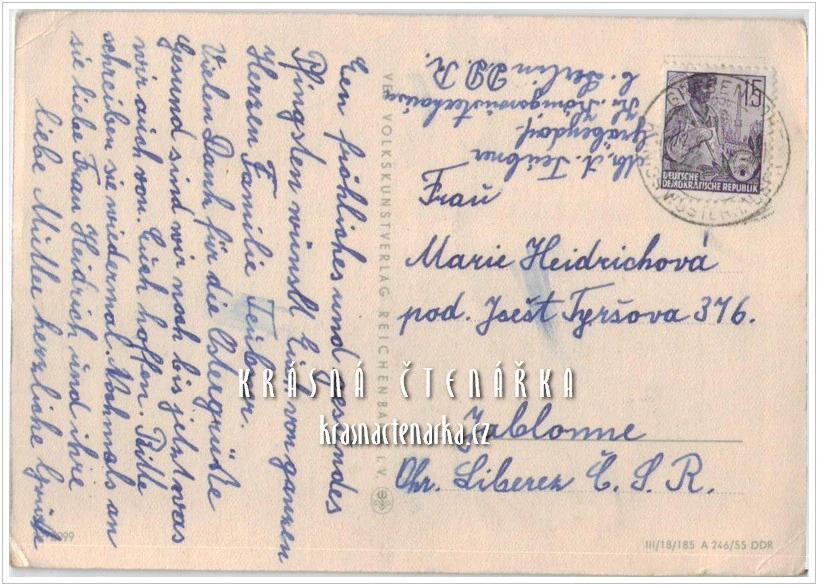 Een fröhliches und gesundes
Pfingsten wünscht Euch von ganzen
Herzen Familie Teibner.
Vielen Dank für die Ostergrüße
Gesund sind wir noch bis jetzt was
wir auch von Euch hoffen. Bitte
schreiben sie wiedermal. Nochmals an
sie liebe Frau Heidrich und ihre
liebe Mutter herzliche Grüße
VEB VOLKSKUNSTVERLAG REICHENBACH I. V.
Teibner
Gräbendorf
Kr. Königswusterhausen
b. Berlin D.D.R.
15
DEUTSCHE
DEMOKRATISCHE REPUBLIK
Frau
Marie Heidrichová
pod. Ještě Tyršova 376.
Jablonne
Okr. Liberez Č.S.R.
KRÁSNÁ ČTENÁŘKA
krasnactenarka.cz
III/18/185 A 246/55 DDR